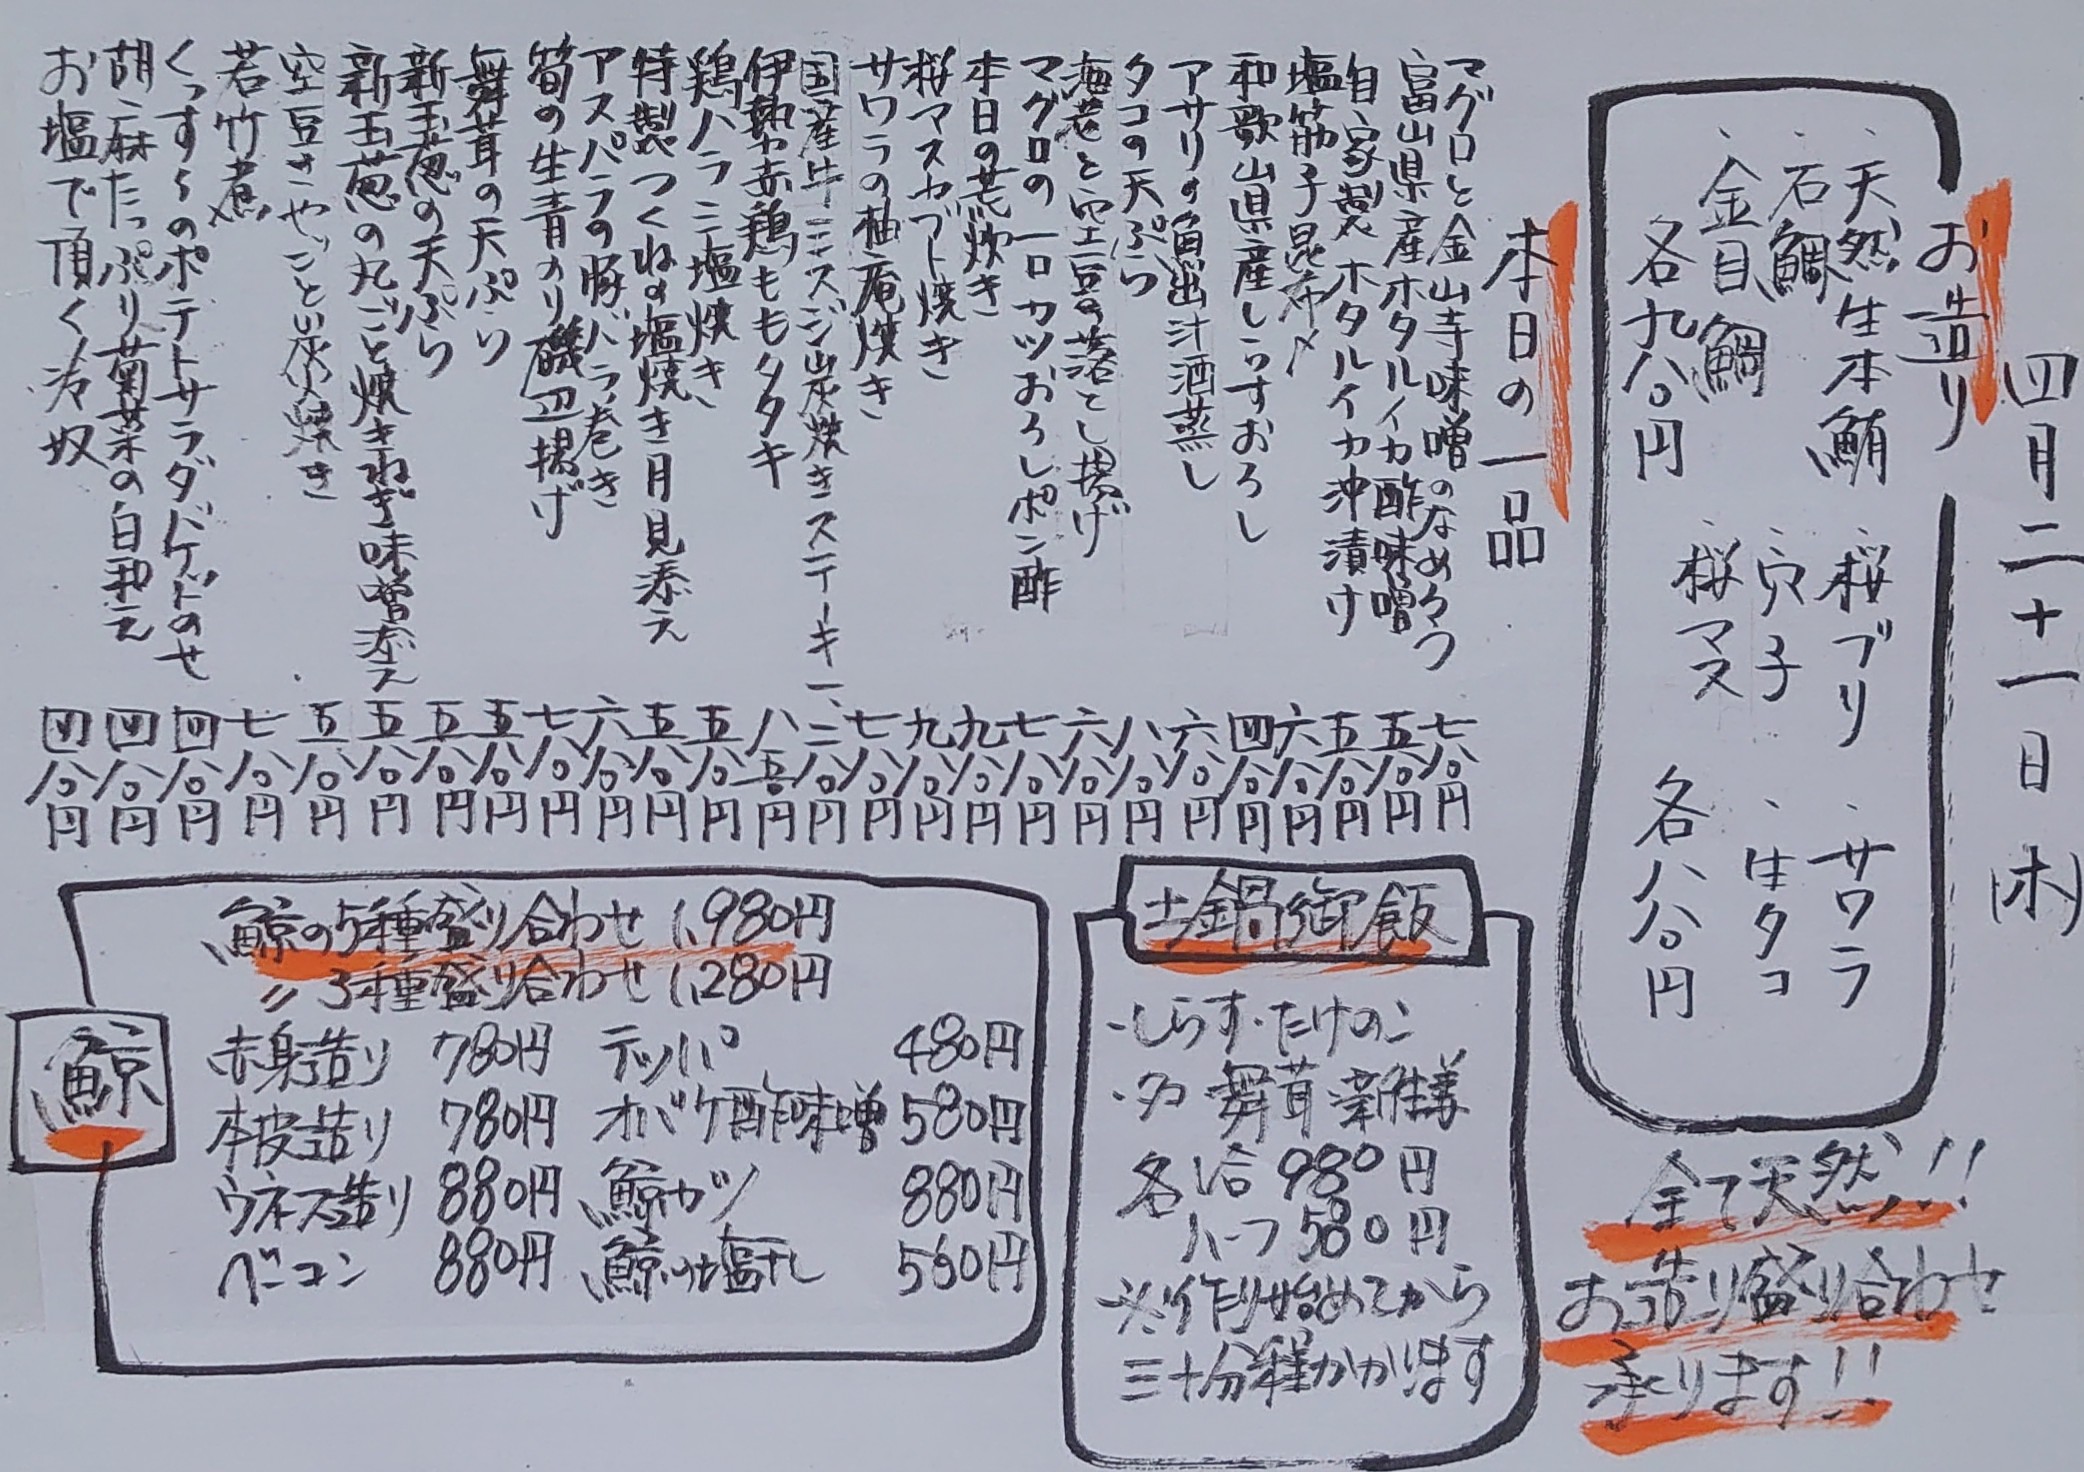 四月二十一日(木)
お造り
・天然生本鮪
・石鯛
・金目鯛
各九八〇円
・桜ブリ
・穴子
・桜マス
・サワラ
・生タコ
各八八〇円
全て天然!!
お造り盛り合わせ
承ります!!
本日の一品
マグロと金山寺味噌のなめろう 七八〇円
富山県産ホタルイカ酢味噌 五八〇円
自家製ホタルイカ沖漬け 五八〇円
塩筋子昆布〆 六八〇円
和歌山県産しらすおろし 四八〇円
アサリの魚出汁酒蒸し 六八〇円
タコの天ぷら 八八〇円
海老と空豆の落とし揚げ 六八〇円
マグロの一口カツおろしポン酢 七八〇円
本日の荒炊き 九八〇円
桜マスカブト焼き 九八〇円
サワラの柚庵焼き 七八〇円
国産牛ミスジ炭焼きステーキ 一、二八〇円
伊勢赤鶏ももタタキ 八五〇円
鶏ハラミ塩焼き 五八〇円
特製つくねの塩焼き月見添え 五八〇円
アスパラの豚バラ巻き 六八〇円
筍の生青のり磯辺揚げ 七八〇円
舞茸の天ぷら 五八〇円
新玉葱の天ぷら 五八〇円
新玉葱の丸ごと焼きねぎ味噌添え 五八〇円
空豆さやごと炭火焼き 五八〇円
若竹煮 七八〇円
くっすぅのポテトサラダバゲットのせ 四八〇円
胡麻たっぷり菊菜の白和え 四八〇円
お塩で頂く冷奴 四八〇円
土鍋御飯
・しらす・たけのこ
・タコ 舞茸 新生姜
各1合 980円
ハーフ 580円
※作り始めてから
三十分程かかります
鯨
鯨の5種盛り合わせ 1,980円
〃 3種盛り合わせ 1,280円
赤身造り 780円 テッパ 480円
本皮造り 780円 オバケ酢味噌 580円
ウネス造り 880円 鯨カツ 880円
ベーコン 880円 鯨の塩干し 560円